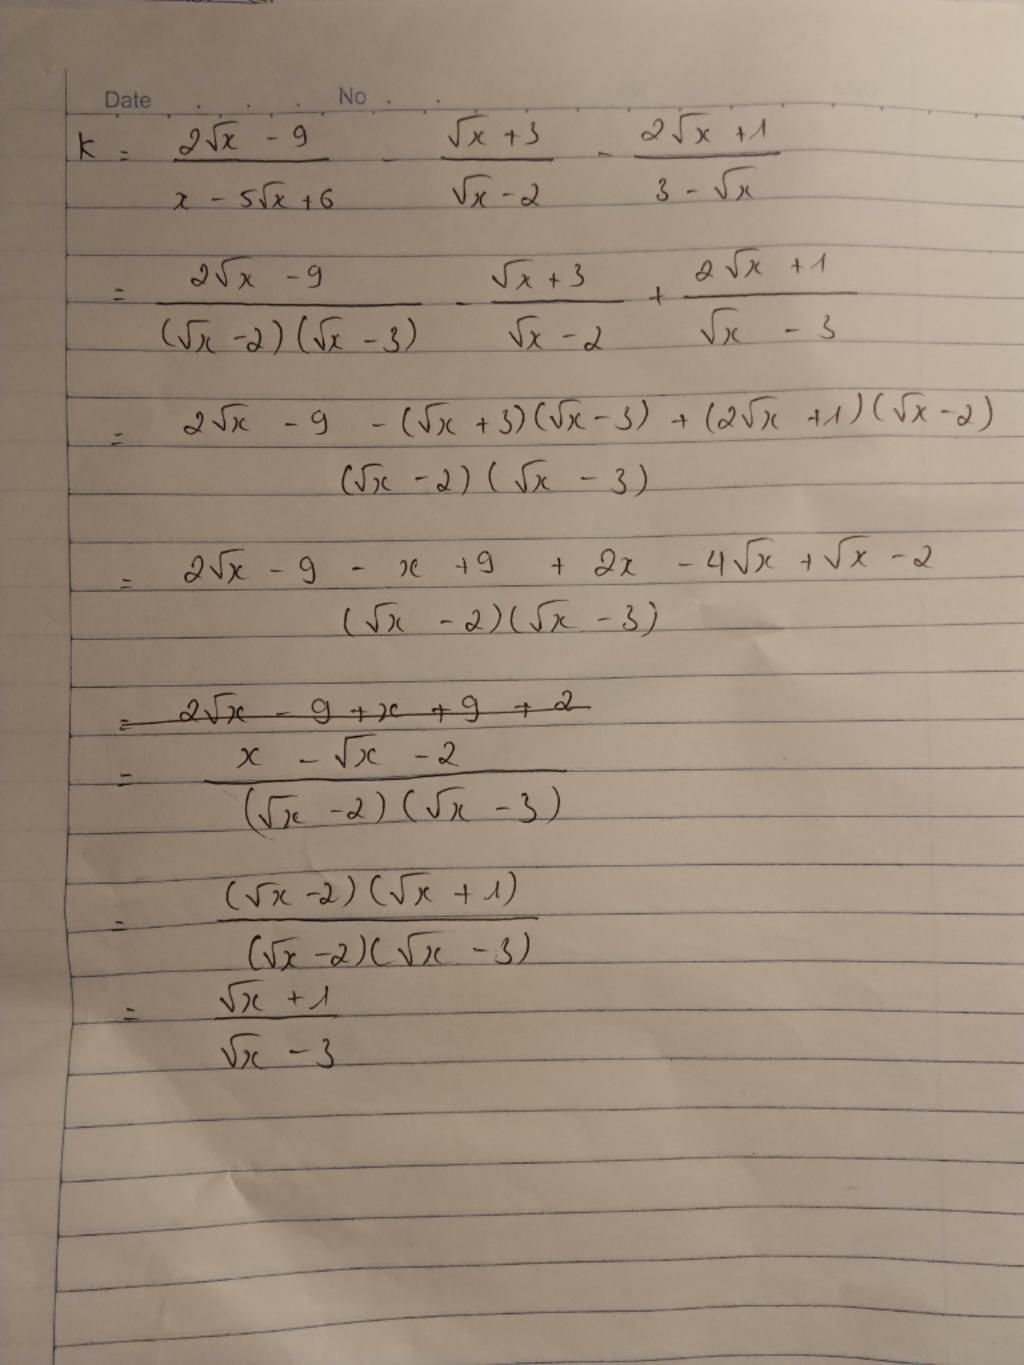 Date . . . No . .
K = (2√x - 9)/(x - 5√x + 6) - (√x + 3)/(√x - 2) - (2√x + 1)/(3 - √x)
= (2√x - 9)/((√x - 2)(√x - 3)) - (√x + 3)/(√x - 2) + (2√x + 1)/(√x - 3)
= (2√x - 9 - (√x + 3)(√x - 3) + (2√x + 1)(√x - 2))/((√x - 2)(√x - 3))
= (2√x - 9 - x + 9 + 2x - 4√x + √x - 2)/((√x - 2)(√x - 3))
= 2√x - 9 + x + 9 + 2
= (x - √x - 2)/((√x - 2)(√x - 3))
= ((√x - 2)(√x + 1))/((√x - 2)(√x - 3))
= (√x + 1)/(√x - 3)